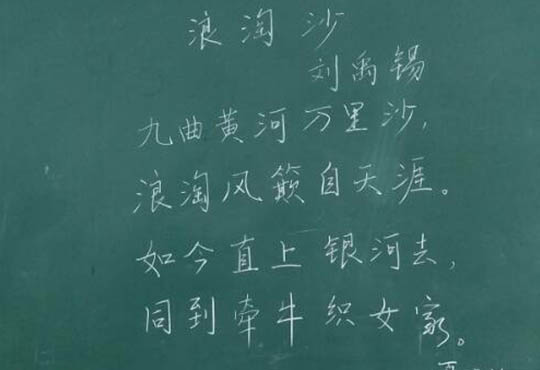 浪淘沙
刘禹锡
九曲黄河万里沙，
浪淘风簸自天涯。
如今直上银河去，
同到牵牛织女家。